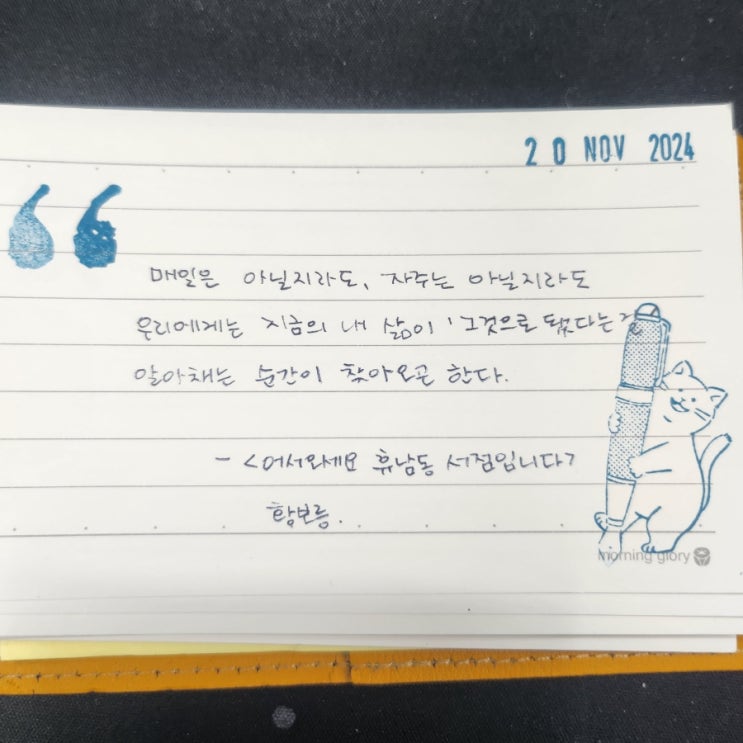 20 NOV 2024
매일은 아닐지라도, 자주는 아닐지라도
우리에게는 지금의 내 삶이 '그것으로 됐다는 걸
알아채는 순간이 찾아오곤 한다.
- <어서와세요 휴남동 서점입니다>
황보름.
morning glory